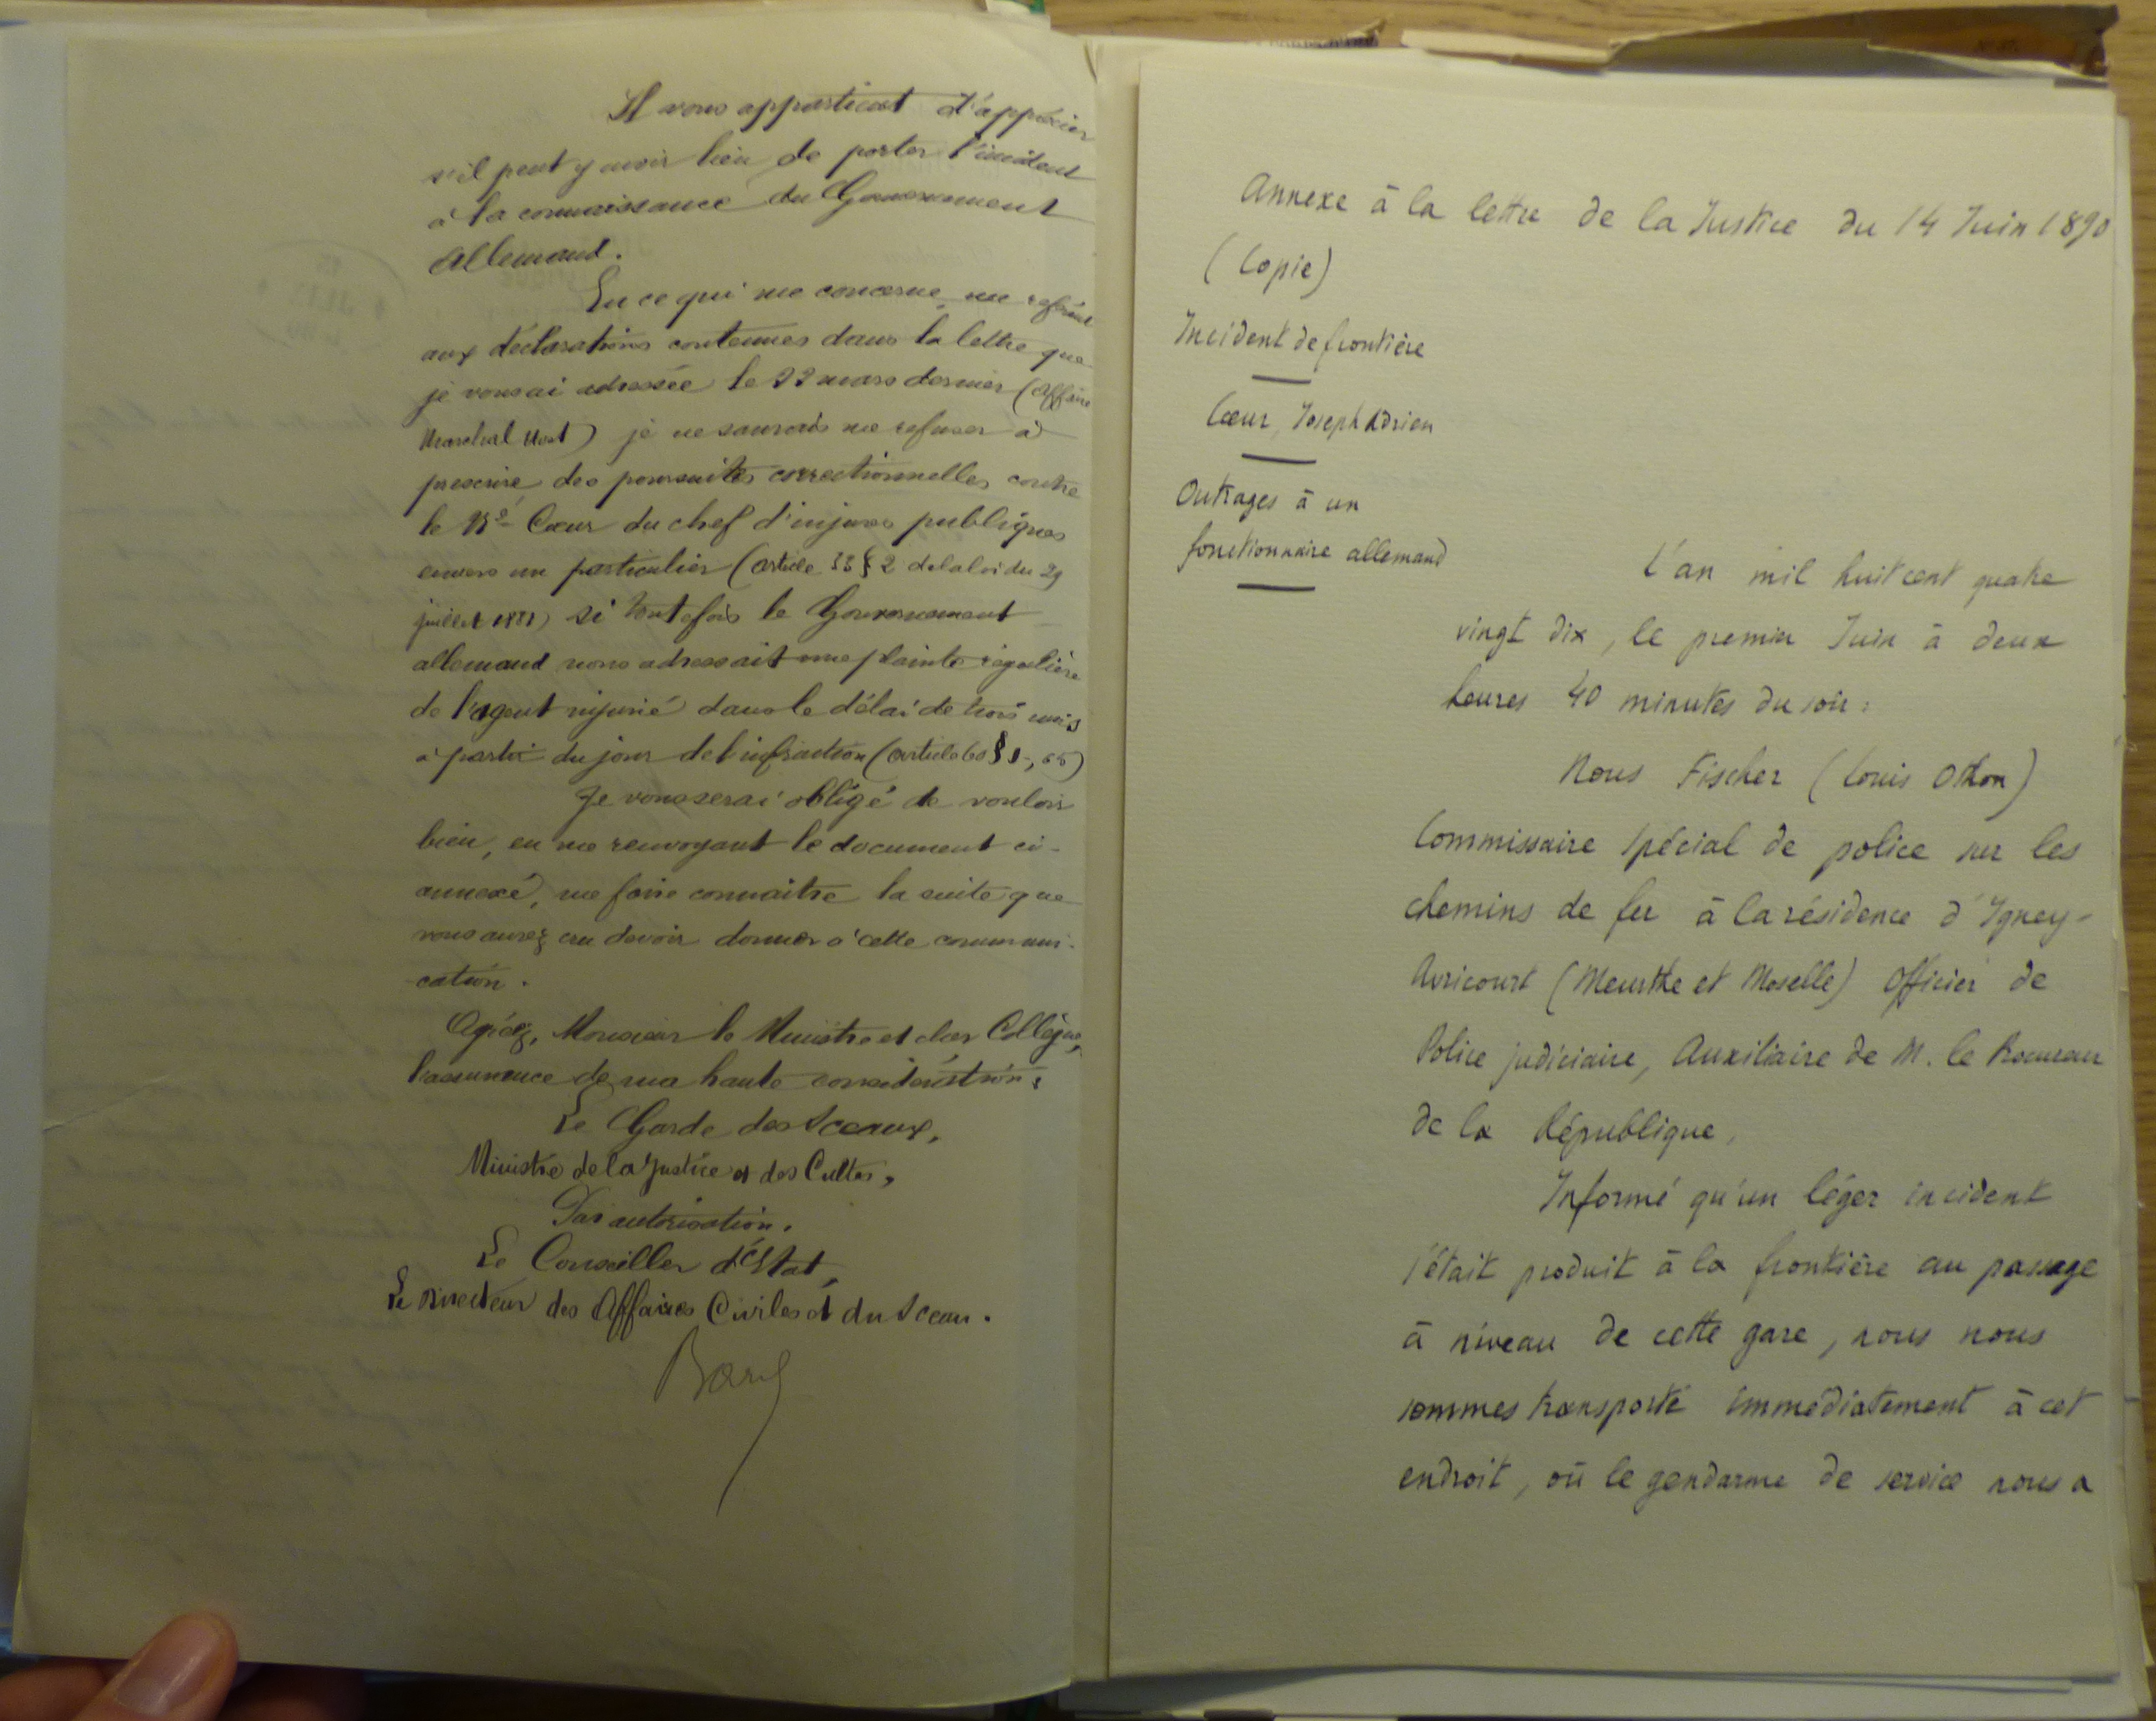 Il vous appartient d'apprécier
s'il peut y avoir lieu de porter l'incident
à la connaissance du Gouvernement
Allemand.
En ce qui me concerne, me referant
aux déclarations contenues dans la lettre que
je vous ai adressée le 22 mars dernier (Affaire
Marchal) je ne saurais me refuser à
prescrire des poursuites correctionnelles contre
le Né Cœur du chef d'injures publiques
envers un particulier (article 33 § 2 de la loi du 29
juillet 1881) si toutefois le Gouvernement
allemand nous adressait une plainte régulière
de l'agent injurié dans le délai de trois mois
à partir du jour de l'infraction (article 60 § 1, 65)
Je vous serai obligé de vouloir
bien, en me renvoyant le document ci-
annexé, me faire connaitre la suite que
vous aurez cru devoir donner à cette communi-
cation.
Agréez, Monsieur le Ministre et cher Collègue,
l'assurance de ma haute considération:
Le Garde des Sceaux,
Ministre de la Justice et des Cultes,
Par autorisation.
Le Conseiller d'Etat,
Le Directeur des Affaires Civiles et du Sceau.
Annexe à la lettre de la Justice du 14 Juin 1890
(Copie)
Incident de frontière
Cœur, Joseph Adrien
Outrages à un
fonctionnaire allemand
L'an mil huit cent quatre
vingt dix, le premier Juin à deux
heures 40 minutes du soir:
Nous Fischer (Louis Othon)
Commissaire spécial de police sur les
chemins de fer à la résidence d'Igney-
Avricourt (Meurthe et Moselle) Officier de
Police judiciaire, Auxiliaire de M. le Procureur
de la République,
Informé qu'un léger incident
s'était produit à la frontière au passage
à niveau de cette gare, nous nous
sommes transporté immédiatement à cet
endroit, où le gendarme de service nous a